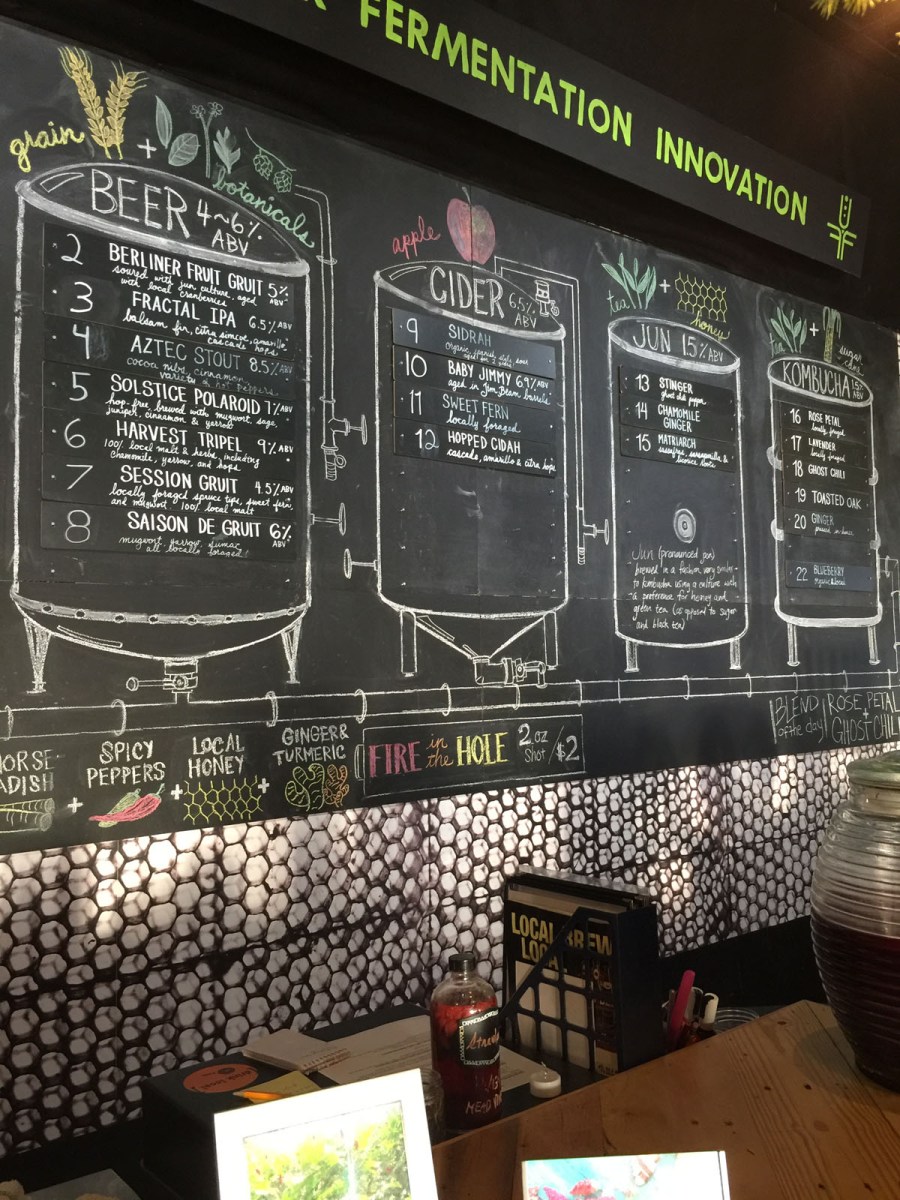 FERMENTATION INNOVATION
grain
+
botanicals
BEER 4~6%
ABV
2 BERLINER FRUIT GRUIT 5%
ABV
soured with jun culture, aged
with local cranberries
3 FRACTAL IPA 6.5% ABV
balsam fir, citra simcoe, amarillo
cascade hops
4 AZTEC STOUT 8.5% ABV
cocoa nibs, cinnamon,
variety of hot peppers
5 SOLSTICE POLAROID 7% ABV
hop-free brewed with mugwort, sage,
juniper, cinnamon & yarrow
6 HARVEST TRIPEL 9% ABV
100% local malt & herbs, including
chamomile, yarrow, and hops
7 SESSION GRUIT 4.5% ABV
locally foraged spruce tips, sweet fern,
and mugwort. 100% local malt
8 SAISON DE GRUIT 6%
ABV
mugwort, yarrow, sumac
all locally foraged!
apple
CIDER 6.5%
ABV
9 SIDRAH
organic, spanish style, sour
10 BABY JIMMY 6.9% ABV
aged in Jim Beam barrels
11 SWEET FERN
locally foraged
12 HOPPED CIDAH
cascade, amarillo & citra hops
tea
+
honey
JUN 1.5% ABV
13 STINGER
ghost chili pepper
14 CHAMOMILE
GINGER
15 MATRIARCH
sassafras, sarsaparilla &
licorice roots
Jun (pronounced
brewed in a fashion very similar
to kombucha using a culture with
a preference for honey and
green tea (as opposed to sugar
and black tea)
tea
+
sugar
cane
KOMBUCHA 1.5%
ABV
16 ROSE PETAL
locally foraged
17 LAVENDER
locally foraged
18 GHOST CHILI
19 TOASTED OAK
20 GINGER
22 BLUEBERRY
BLEND
of the day
ROSE PETAL
+
GHOST CHILI
ORSE
ADISH
+
SPICY
PEPPERS
+
LOCAL
HONEY
+
GINGER &
TURMERIC
FIRE in the HOLE 2 oz
Shot / $2
LOCAL BREW
LOCA